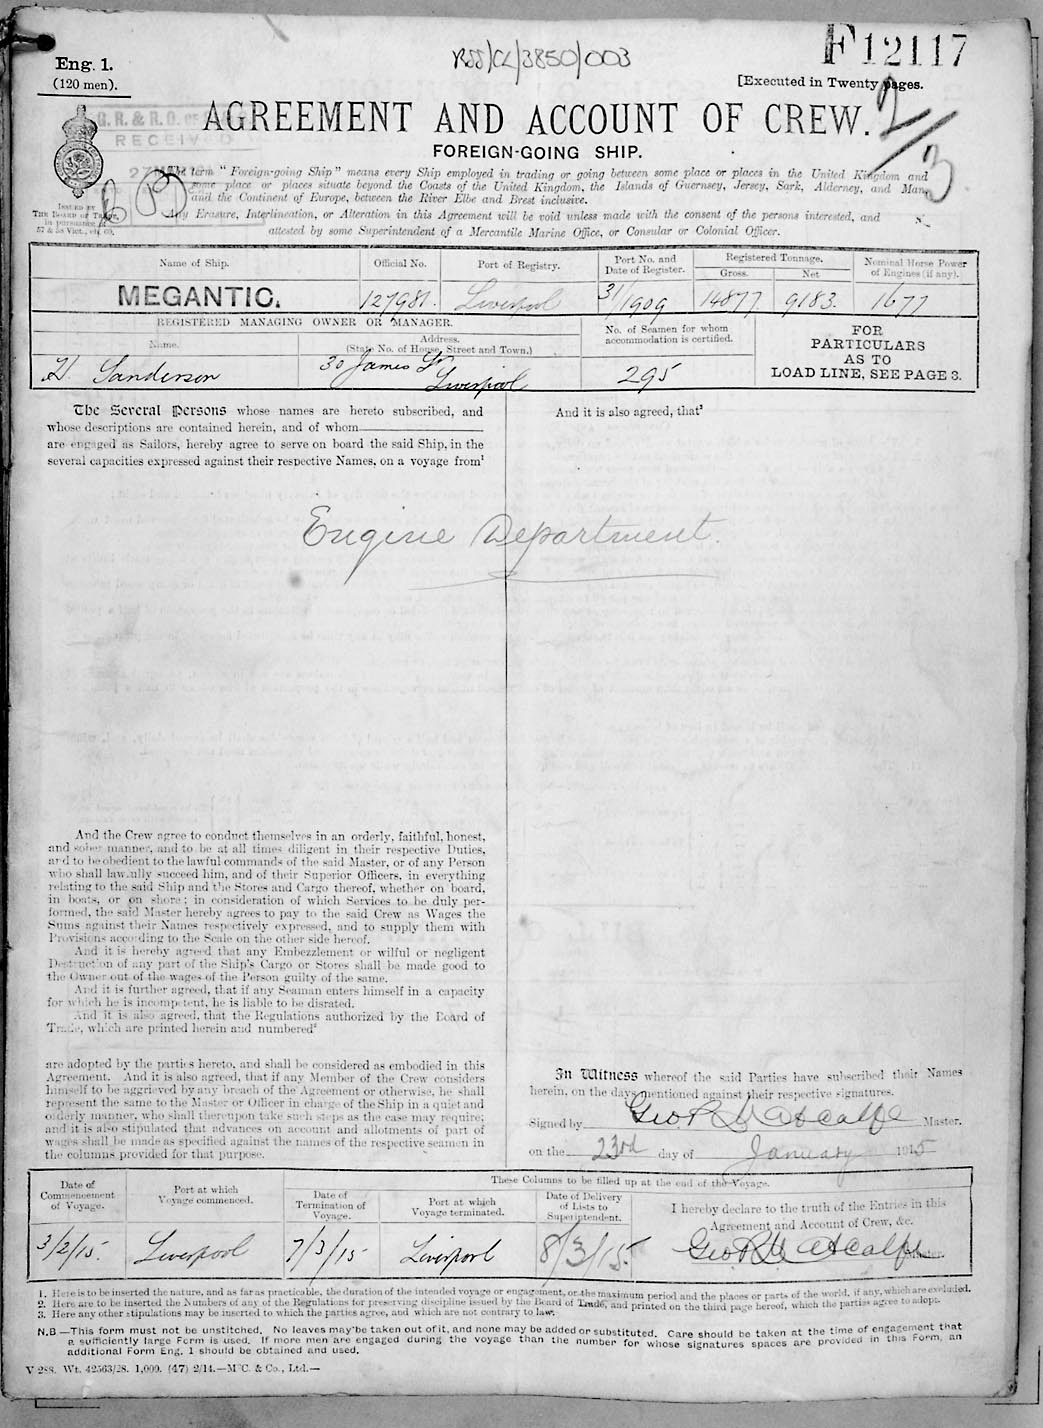 RSS/CL/3850/003
F12117
Eng. 1.
(120 men).
[Executed in Twenty pages.
2/3
AGREEMENT AND ACCOUNT OF CREW.
FOREIGN-GOING SHIP.
RECEIVED
The term "Foreign-going Ship" means every Ship employed in trading or going between some place or places in the United Kingdom and
some place or places situate beyond the Coasts of the United Kingdom, the Islands of Guernsey, Jersey, Sark, Alderney, and Man,
and the Continent of Europe, between the River Elbe and Brest inclusive.
Any Erasure, Interlineation, or Alteration in this Agreement will be void unless made with the consent of the persons interested, and
attested by some Superintendent of a Mercantile Marine Office, or Consular or Colonial Officer.
ISSUED BY
THE BOARD OF TRADE,
IN PURSUANCE OF
57 & 58 Vict., ch. 60.
Name of Ship. Official No. Port of Registry. Port No. and Date of Register. Registered Tonnage. Gross. Net Nominal Horse Power of Engines (if any).
MEGANTIC. 127981. Liverpool 31/1909 14877 9183. 1677
REGISTERED MANAGING OWNER OR MANAGER.
Name. Address. (State No. of House, Street and Town.) No. of Seamen for whom accommodation is certified.
H. Sanderson 30 James St Liverpool 295
FOR
PARTICULARS
AS TO
LOAD LINE, SEE PAGE 3.
The Several Persons whose names are hereto subscribed, and
whose descriptions are contained herein, and of whom
are engaged as Sailors, hereby agree to serve on board the said Ship, in the
several capacities expressed against their respective Names, on a voyage from¹
And it is also agreed, that³
Engine Department.
And the Crew agree to conduct themselves in an orderly, faithful, honest,
and sober manner, and to be at all times diligent in their respective Duties,
and to be obedient to the lawful commands of the said Master, or of any Person
who shall lawfully succeed him, and of their Superior Officers, in everything
relating to the said Ship and the Stores and Cargo thereof, whether on board,
in boats, or on shore; in consideration of which Services to be duly per-
formed, the said Master hereby agrees to pay to the said Crew as Wages the
Sums against their Names respectively expressed, and to supply them with
Provisions according to the Scale on the other side hereof.
And it is hereby agreed that any Embezzlement or wilful or negligent
Destruction of any part of the Ship's Cargo or Stores shall be made good to
the Owner out of the wages of the Person guilty of the same.
And it is further agreed, that if any Seaman enters himself in a capacity
for which he is incompetent, he is liable to be disrated.
And it is also agreed, that the Regulations authorized by the Board of
Trade, which are printed herein and numbered²
are adopted by the parties hereto, and shall be considered as embodied in this
Agreement. And it is also agreed, that if any Member of the Crew considers
himself to be aggrieved by any breach of the Agreement or otherwise, he shall
represent the same to the Master or Officer in charge of the Ship in a quiet and
orderly manner, who shall thereupon take such steps as the case may require;
and it is also stipulated that advances on account and allotments of part of
wages shall be made as specified against the names of the respective seamen in
the columns provided for that purpose.
In Witness whereof the said Parties have subscribed their Names
herein, on the days mentioned against their respective signatures.
Signed by Geo R Metcalfe Master.
on the 23rd day of January 1915
These Columns to be filled up at the end of the Voyage.
Date of Commencement of Voyage. Port at which Voyage commenced. Date of Termination of Voyage. Port at which Voyage terminated. Date of Delivery of Lists to Superintendent.
I hereby declare to the truth of the Entries in this
Agreement and Account of Crew, &c.
3/2/15. Liverpool 7/3/15 Liverpool 8/3/15. Geo R Metcalfe Master.
1. Here is to be inserted the nature, and as far as practicable, the duration of the intended voyage or engagement, or the maximum period and the places or parts of the world, if any, which are excluded.
2. Here are to be inserted the Numbers of any of the Regulations for preserving discipline issued by the Board of Trade, and printed on the third page hereof, which the parties agree to adopt.
3. Here any other stipulations may be inserted to which the parties agree, and which are not contrary to law.
N.B—This form must not be unstitched. No leaves may be taken out of it, and none may be added or substituted. Care should be taken at the time of engagement that
a sufficiently large Form is used. If more men are engaged during the voyage than the number for whose signatures spaces are provided in this Form, an
additional Form Eng. 1 should be obtained and used.
V 288. Wt. 42563/28. 1,000. (47) 2/14.—McC. & Co., Ltd.—